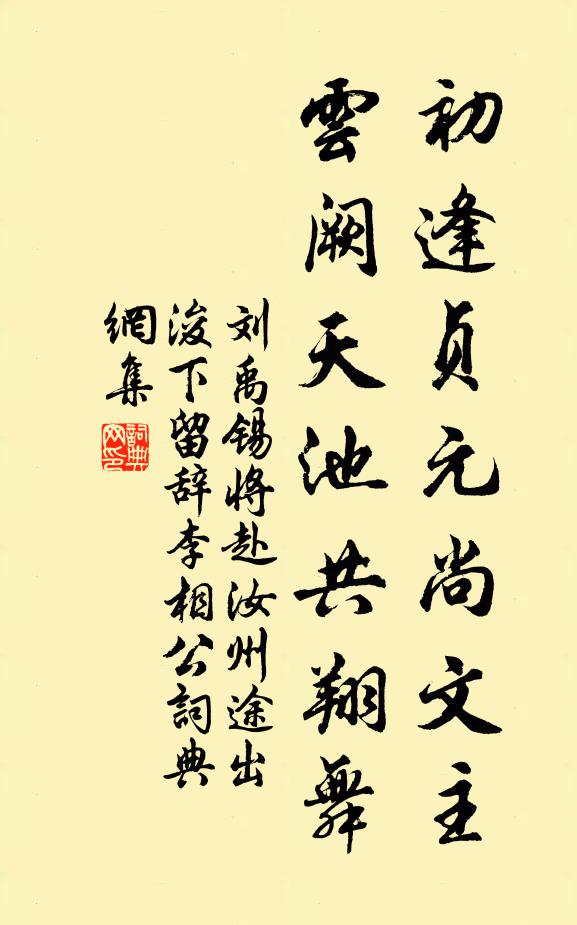 初逢贞元尚文主
雲阙天池共翔舞
刘禹锡将赴汝州途出
浚下留辞李相公詞典
網集
詞典网印